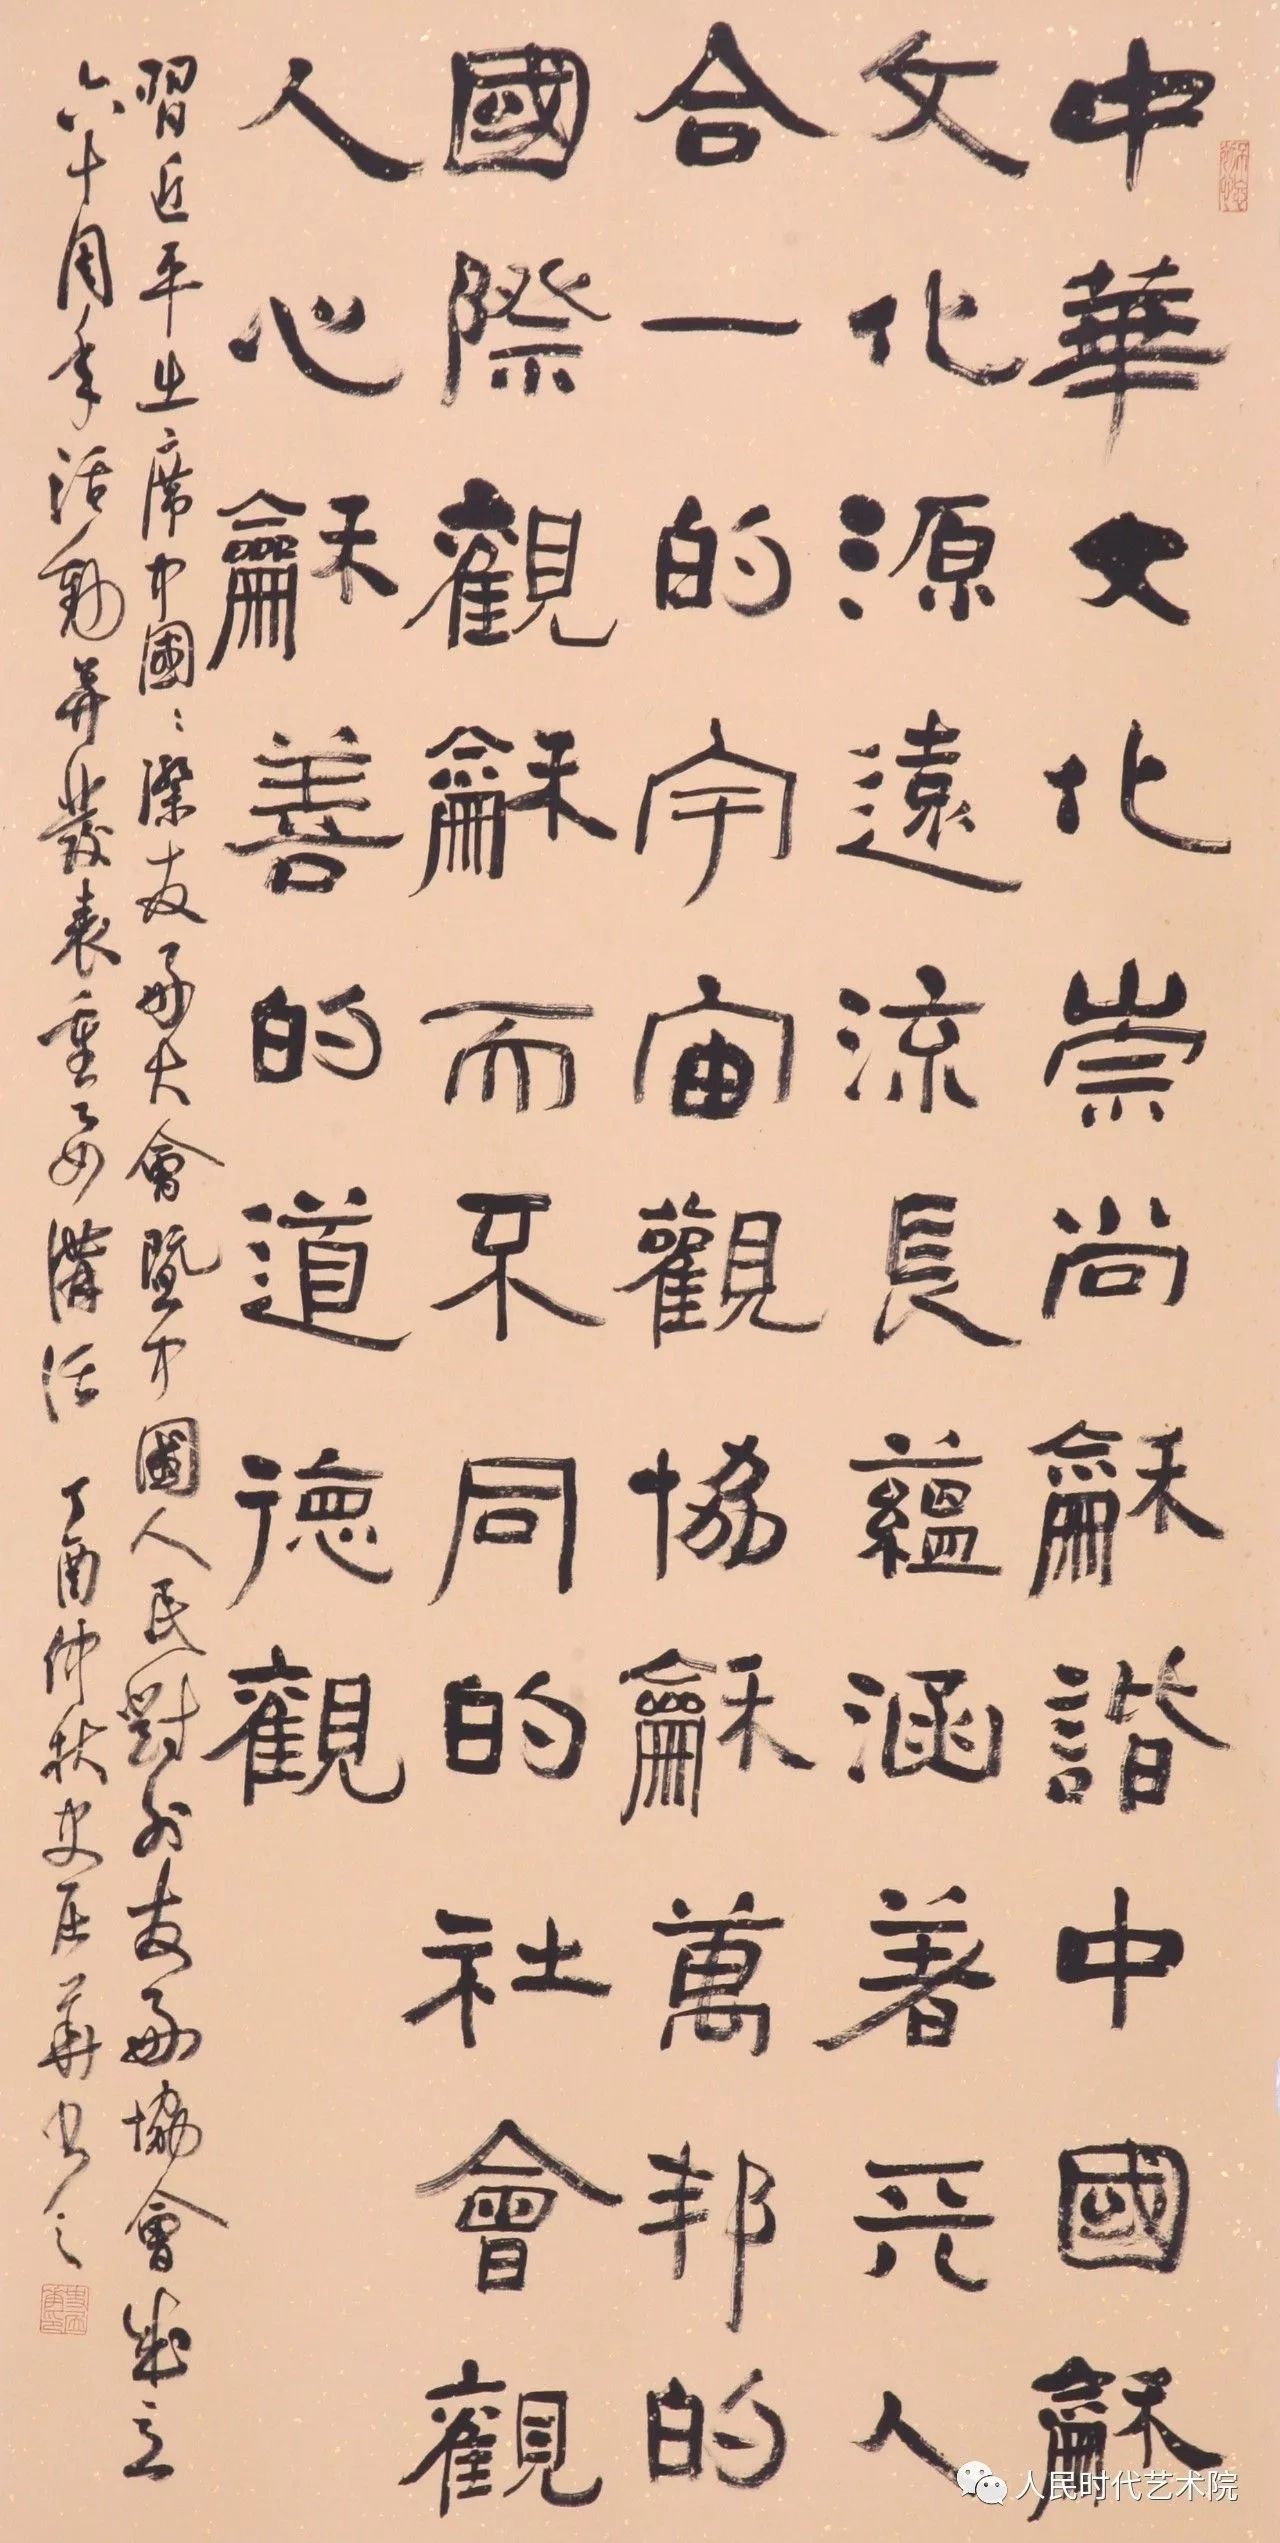 中華文化崇尚龢諧中國龢
文化源遠流長蘊涵著天人
合一的宇宙觀協龢萬邦的
國際觀龢而不同的社會觀
人心龢善的道德觀
習近平出席中國〻際友好大會暨中國人民對外友好協會成立
六十周年活動并發表重要講話 丁酉仲秋史華書之
人民时代艺术院